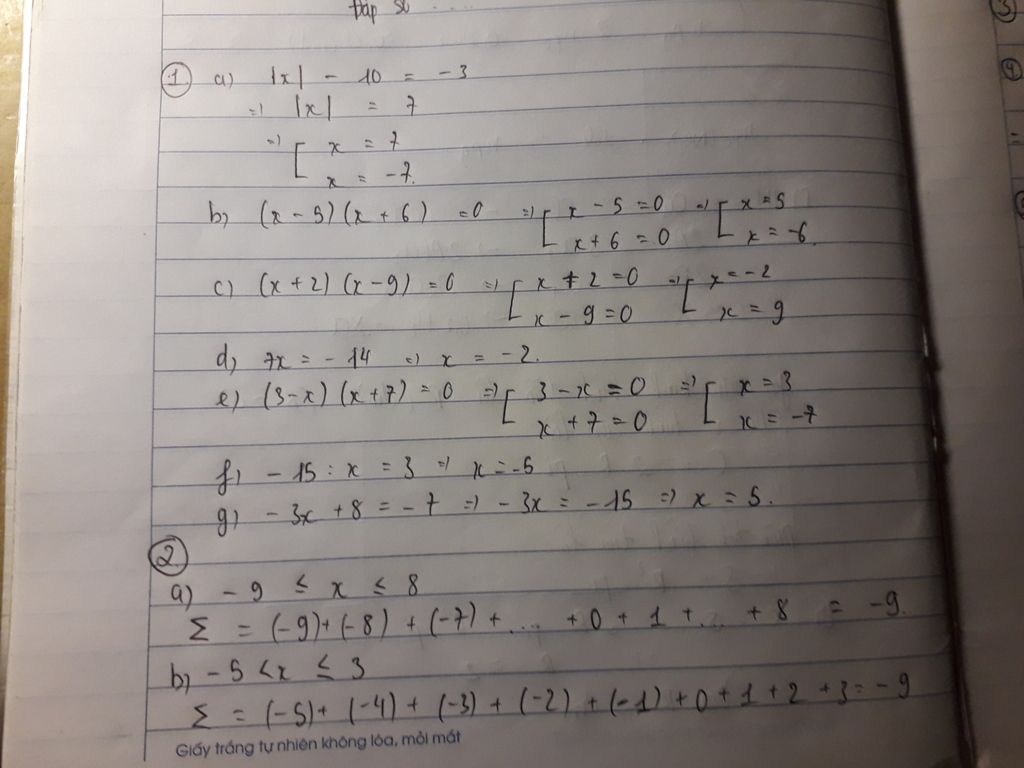 Đáp số ....
① a) |x| - 10 = -3
=> |x| = 7
=> [ x = 7
x = -7.
b) (x - 5)(x + 6) = 0 => [ x - 5 = 0 => [ x = 5
x + 6 = 0 x = -6.
c) (x + 2) (x - 9) = 0 => [ x + 2 = 0 => [ x = -2
x - 9 = 0 x = 9
d) 7x = - 14 => x = -2.
e) (3-x) (x + 7) = 0 => [ 3 - x = 0 => [ x = 3
x + 7 = 0 x = -7
f) - 15 : x = 3 => x = -5
g) - 3x + 8 = - 7 => - 3x = - 15 => x = 5.
②
a) - 9 ≤ x ≤ 8
Σ = (-9) + (-8) + (-7) + .... + 0 + 1 + ... + 8 = -9.
b) - 5 < x ≤ 3
Σ = (-5) + (-4) + (-3) + (-2) + (-1) + 0 + 1 + 2 + 3 = - 9
Giấy trắng tự nhiên không lóa, mỏi mắt
3
4
=